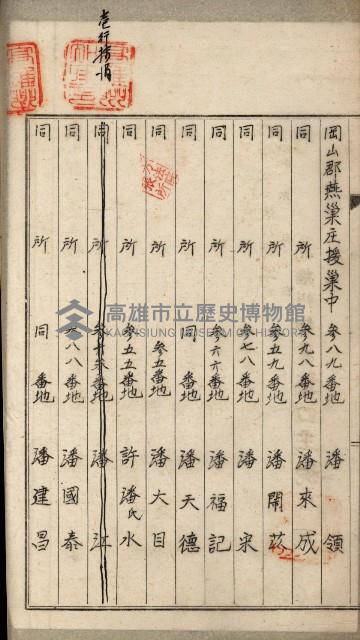 壱行抹消
岡山郡燕巢庄援巢中 參八九番地 潘領
同所 參九八番地 潘來成
同所 參五九番地 潘鬧
同所 參七八番地 潘宋
同所 參六六番地 潘福記
同所 同番地 潘天德
同所 參五番地 潘大目
同所 參五五番地 許潘氏水
同所 番地 潘江
同所 八八番地 潘國泰
同所 同番地 潘建昌
高雄市立歷史博物館
KAOHSIUNG MUSEUM OF HISTORY